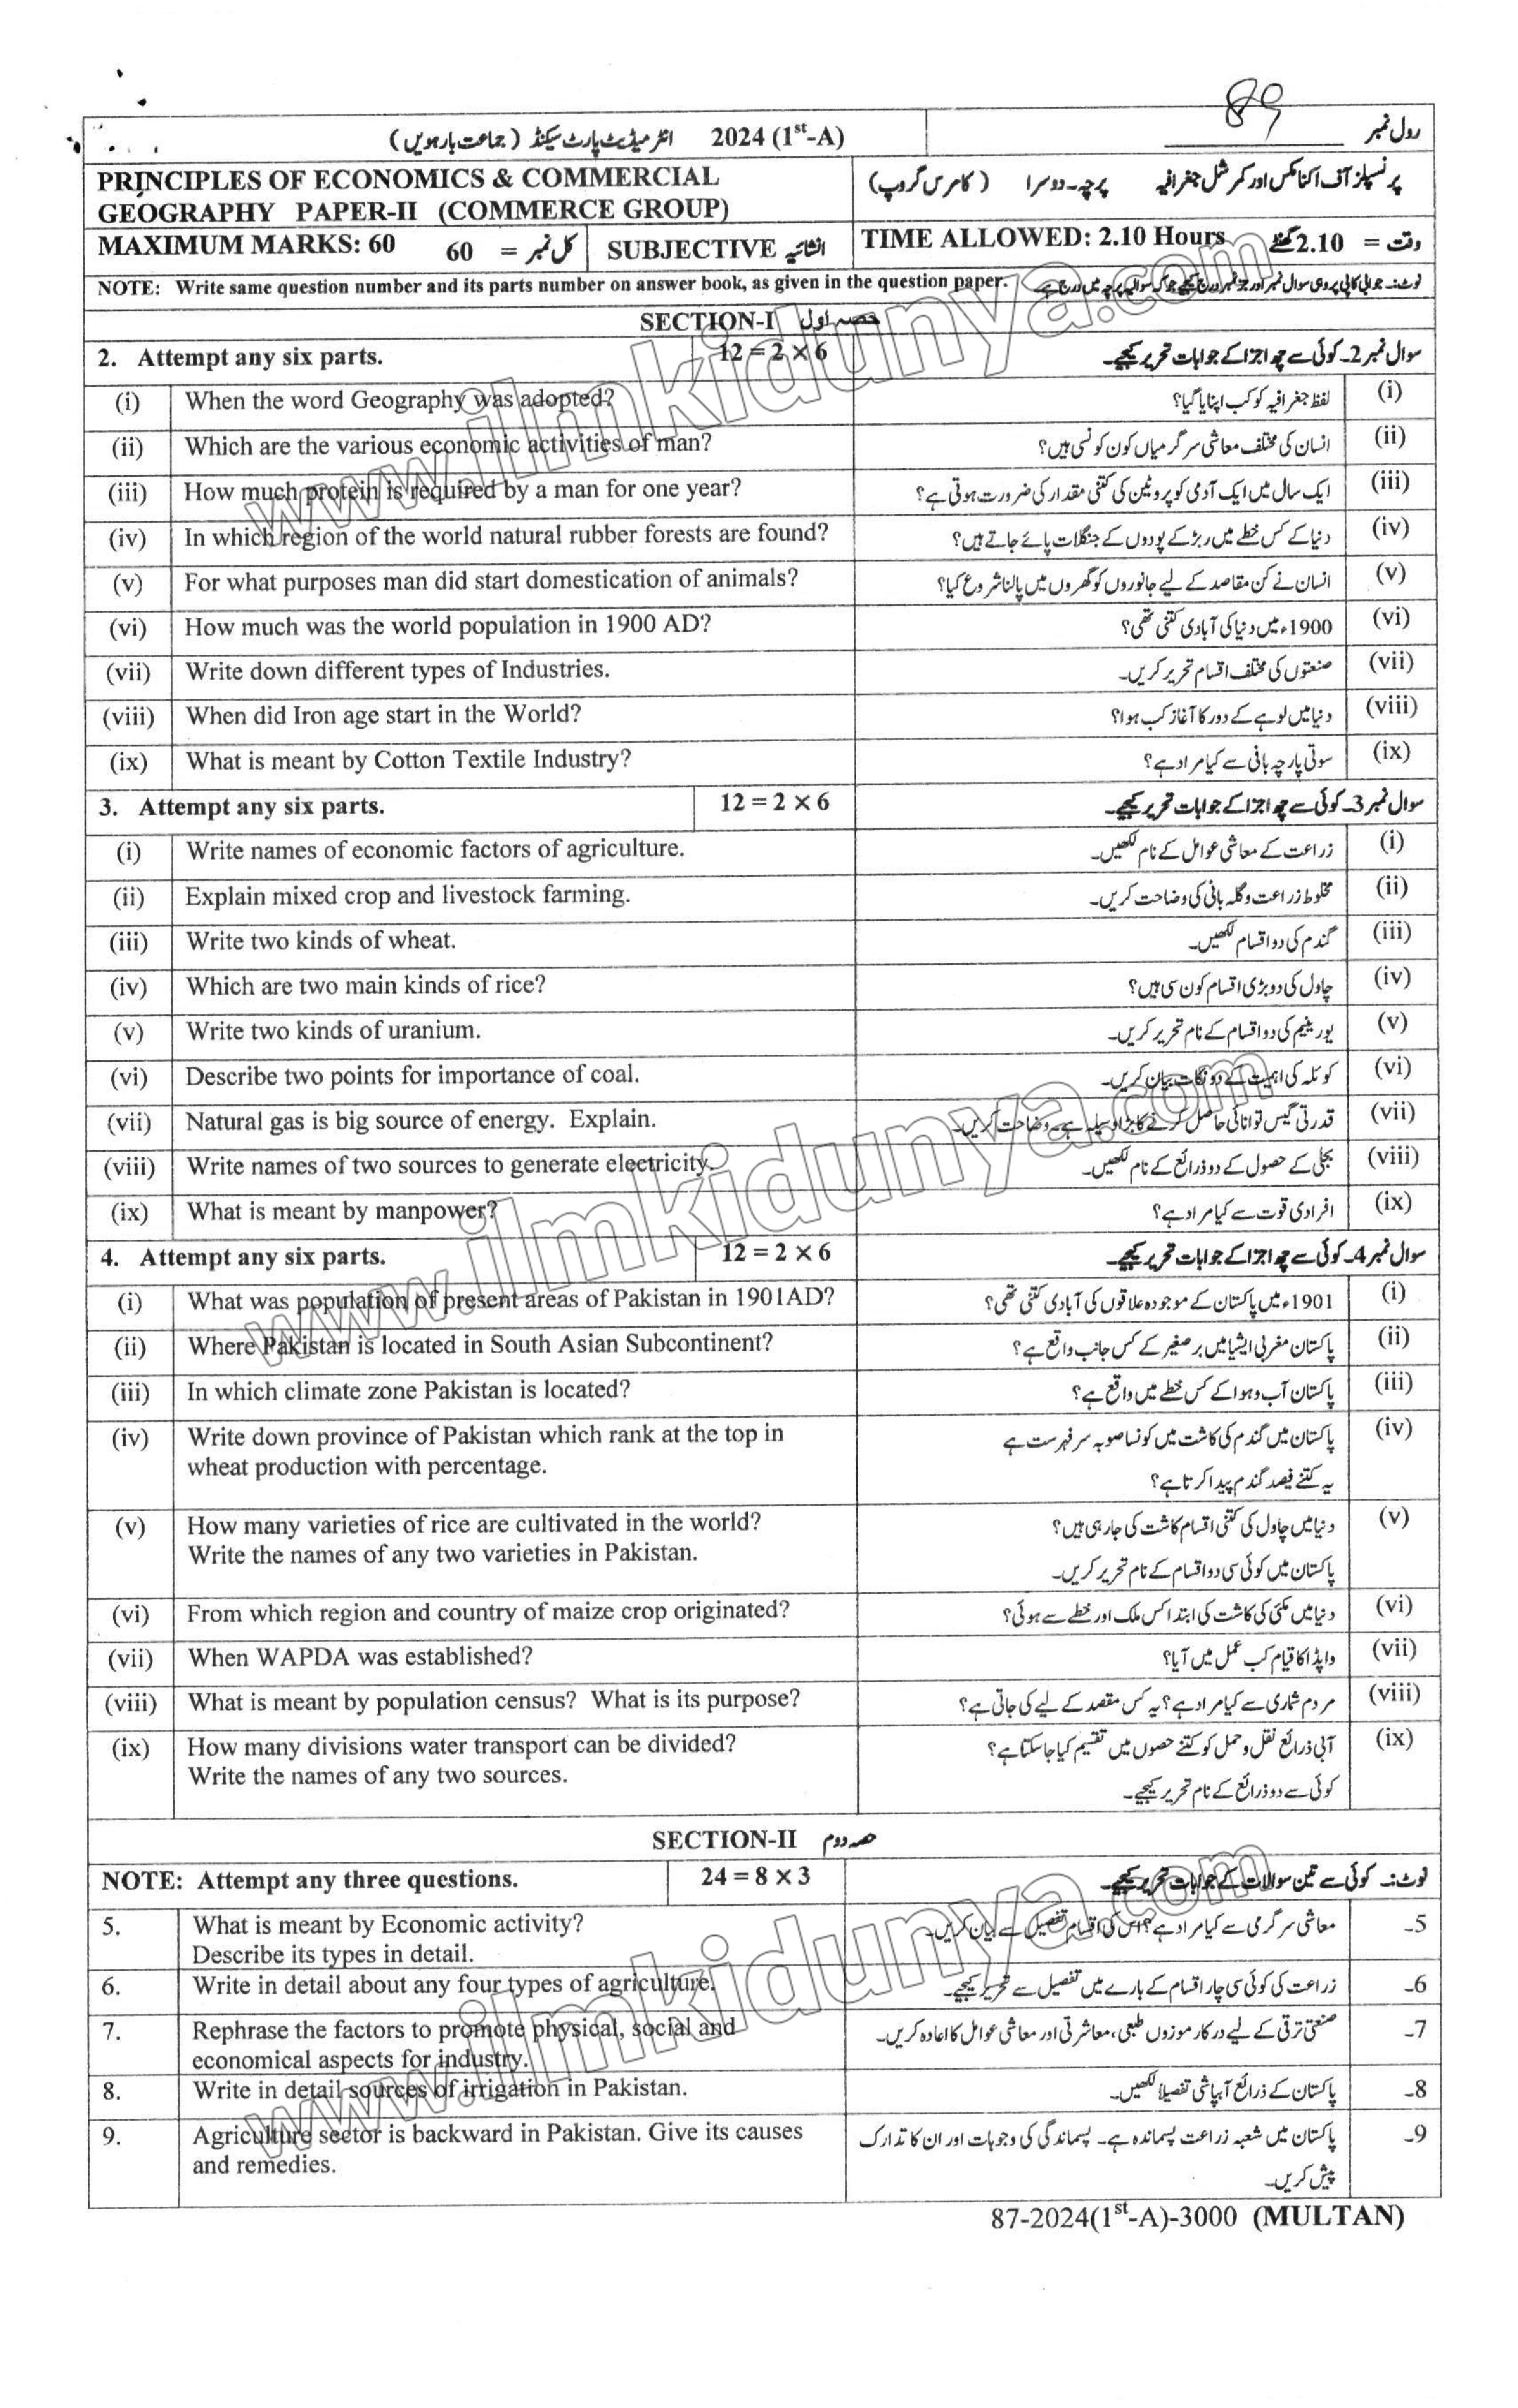 89
رول نمبر
انٹرمیڈیٹ پارٹ سیکنڈ (جماعت بارھویں) 2024 (1st-A)
PRINCIPLES OF ECONOMICS & COMMERCIAL
GEOGRAPHY PAPER-II (COMMERCE GROUP)
پرنسپلز آف اکنامکس اور کمرشل جغرافیہ پرچہ۔ دوسرا (کامرس گروپ)
MAXIMUM MARKS: 60 کل نمبر = 60 SUBJECTIVE انشائیہ TIME ALLOWED: 2.10 Hours وقت = 2.10 گھنٹے
NOTE: Write same question number and its parts number on answer book, as given in the question paper. نوٹ:۔ جوابی کاپی پر وہی سوال نمبر اور جز نمبر درج کیجیے جو کہ سوالیہ پرچہ میں درج ہے۔
SECTION-I حصہ اول
2. Attempt any six parts. 12 = 2 × 6 سوال نمبر 2۔ کوئی سے چھ اجزا کے جوابات تحریر کیجیے۔
(i) When the word Geography was adopted? لفظ جغرافیہ کو کب اپنایا گیا؟ (i)
(ii) Which are the various economic activities of man? انسان کی مختلف معاشی سرگرمیاں کون کونسی ہیں؟ (ii)
(iii) How much protein is required by a man for one year? ایک سال میں ایک آدمی کو پروٹین کی کتنی مقدار کی ضرورت ہوتی ہے؟ (iii)
(iv) In which region of the world natural rubber forests are found? دنیا کے کس خطے میں ربڑ کے پودوں کے جنگلات پائے جاتے ہیں؟ (iv)
(v) For what purposes man did start domestication of animals? انسان نے کن مقاصد کے لیے جانوروں کو گھروں میں پالنا شروع کیا؟ (v)
(vi) How much was the world population in 1900 AD? 1900ء میں دنیا کی آبادی کتنی تھی؟ (vi)
(vii) Write down different types of Industries. صنعتوں کی مختلف اقسام تحریر کریں۔ (vii)
(viii) When did Iron age start in the World? دنیا میں لوہے کے دور کا آغاز کب ہوا؟ (viii)
(ix) What is meant by Cotton Textile Industry? سوتی پارچہ بافی سے کیا مراد ہے؟ (ix)
3. Attempt any six parts. 12 = 2 × 6 سوال نمبر 3۔ کوئی سے چھ اجزا کے جوابات تحریر کیجیے۔
(i) Write names of economic factors of agriculture. زراعت کے معاشی عوامل کے نام لکھیں۔ (i)
(ii) Explain mixed crop and livestock farming. مخلوط زراعت و گلہ بانی کی وضاحت کریں۔ (ii)
(iii) Write two kinds of wheat. گندم کی دو اقسام لکھیں۔ (iii)
(iv) Which are two main kinds of rice? چاول کی دو بڑی اقسام کون سی ہیں؟ (iv)
(v) Write two kinds of uranium. یورینیم کی دو اقسام کے نام تحریر کریں۔ (v)
(vi) Describe two points for importance of coal. کوئلہ کی اہمیت کے دو نکات بیان کریں۔ (vi)
(vii) Natural gas is big source of energy. Explain. قدرتی گیس توانائی حاصل کرنے کا بڑا وسیلہ ہے۔ وضاحت کریں۔ (vii)
(viii) Write names of two sources to generate electricity. بجلی کے حصول کے دو ذرائع کے نام لکھیں۔ (viii)
(ix) What is meant by manpower? افرادی قوت سے کیا مراد ہے؟ (ix)
4. Attempt any six parts. 12 = 2 × 6 سوال نمبر 4۔ کوئی سے چھ اجزا کے جوابات تحریر کیجیے۔
(i) What was population of present areas of Pakistan in 1901AD? 1901ء میں پاکستان کے موجودہ علاقوں کی آبادی کتنی تھی؟ (i)
(ii) Where Pakistan is located in South Asian Subcontinent? پاکستان مغربی ایشیا میں برصغیر کے کس جانب واقع ہے؟ (ii)
(iii) In which climate zone Pakistan is located? پاکستان آب و ہوا کے کس خطے میں واقع ہے؟ (iii)
(iv) Write down province of Pakistan which rank at the top in پاکستان میں گندم کی کاشت میں کونسا صوبہ سرفہرست ہے (iv)
wheat production with percentage. یہ کتنے فیصد گندم پیدا کرتا ہے؟
(v) How many varieties of rice are cultivated in the world? دنیا میں چاول کی کتنی اقسام کاشت کی جا رہی ہیں؟ (v)
Write the names of any two varieties in Pakistan. پاکستان میں کوئی سی دو اقسام کے نام تحریر کریں۔
(vi) From which region and country of maize crop originated? دنیا میں مکئی کی کاشت کی ابتدا کس ملک اور خطے سے ہوئی؟ (vi)
(vii) When WAPDA was established? واپڈا کا قیام کب عمل میں آیا؟ (vii)
(viii) What is meant by population census? What is its purpose? مردم شماری سے کیا مراد ہے؟ یہ کس مقصد کے لیے کی جاتی ہے؟ (viii)
(ix) How many divisions water transport can be divided? آبی ذرائع نقل و حمل کو کتنے حصوں میں تقسیم کیا جا سکتا ہے؟ (ix)
Write the names of any two sources. کوئی سے دو ذرائع کے نام تحریر کیجیے۔
SECTION-II حصہ دوم
NOTE: Attempt any three questions. 24 = 8 × 3 نوٹ:۔ کوئی سے تین سوالات کے جوابات تحریر کیجیے۔
5. What is meant by Economic activity? معاشی سرگرمی سے کیا مراد ہے؟ اس کی اقسام تفصیل سے بیان کریں۔ 5۔
Describe its types in detail.
6. Write in detail about any four types of agriculture. زراعت کی کوئی سی چار اقسام کے بارے میں تفصیل سے تحریر کیجیے۔ 6۔
7. Rephrase the factors to promote physical, social and صنعتی ترقی کے لیے درکار موزوں طبعی، معاشرتی اور معاشی عوامل کا اعادہ کریں۔ 7۔
economical aspects for industry.
8. Write in detail sources of irrigation in Pakistan. پاکستان کے ذرائع آبپاشی تفصیلاً لکھیں۔ 8۔
9. Agriculture sector is backward in Pakistan. Give its causes پاکستان میں شعبہ زراعت پسماندہ ہے۔ پسماندگی کی وجوہات اور ان کا تدارک 9۔
and remedies. پیش کریں۔
87-2024(1st-A)-3000 (MULTAN)
www.ilmkidunya.com
www.ilmkidunya.com
www.ilmkidunya.com